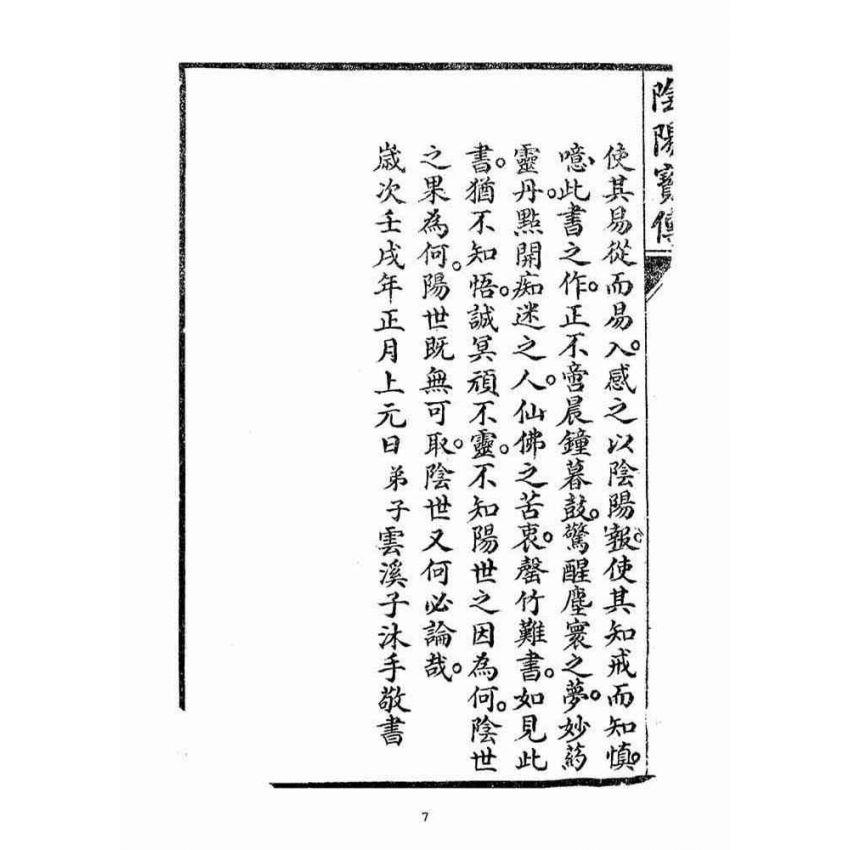 陰陽寶傳
使其易從而易入。感之以陰陽報。使其知戒而知慎。
噫。此書之作。正不啻晨鐘暮鼓。驚醒塵寰之夢。妙葯
靈丹。點開痴迷之人。仙佛之苦衷。罄竹難書。如見此
書。猶不知悟。誠冥頑不靈。不知陽世之因為何。陰世
之果為何。陽世既無可取。陰世又何必論哉。
歲次壬戌年正月上元日弟子雲溪子沐手敬書
7